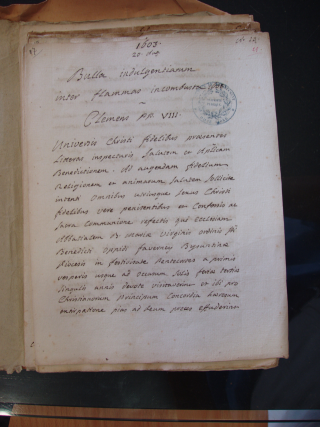 1603.
Bulla indulgentiarum
inter flammas incombusta
Clemens PP. VIII.
Universis Christi fidelibus praesentes
Literas inspecturis, Salutem et Apostolicam
Benedictionem. Ad augendam fidelium
Religionem, et animarum Salutem
intenti Omnibus utriusque Sexus Christi
fidelibus vere penitentibus et Confessis ac
Sacra Communione refectis qui ecclesiam
Virginis ordinis Sti
Benedicti
Diocesis in festivitate Pentecostes a primis
vesperis usque ad occasum Solis
Singulis annis devote visitaverint et ibi pro
Christianorum Principum Concordia haeresum
extirpatione pias ad Deum preces effuderint